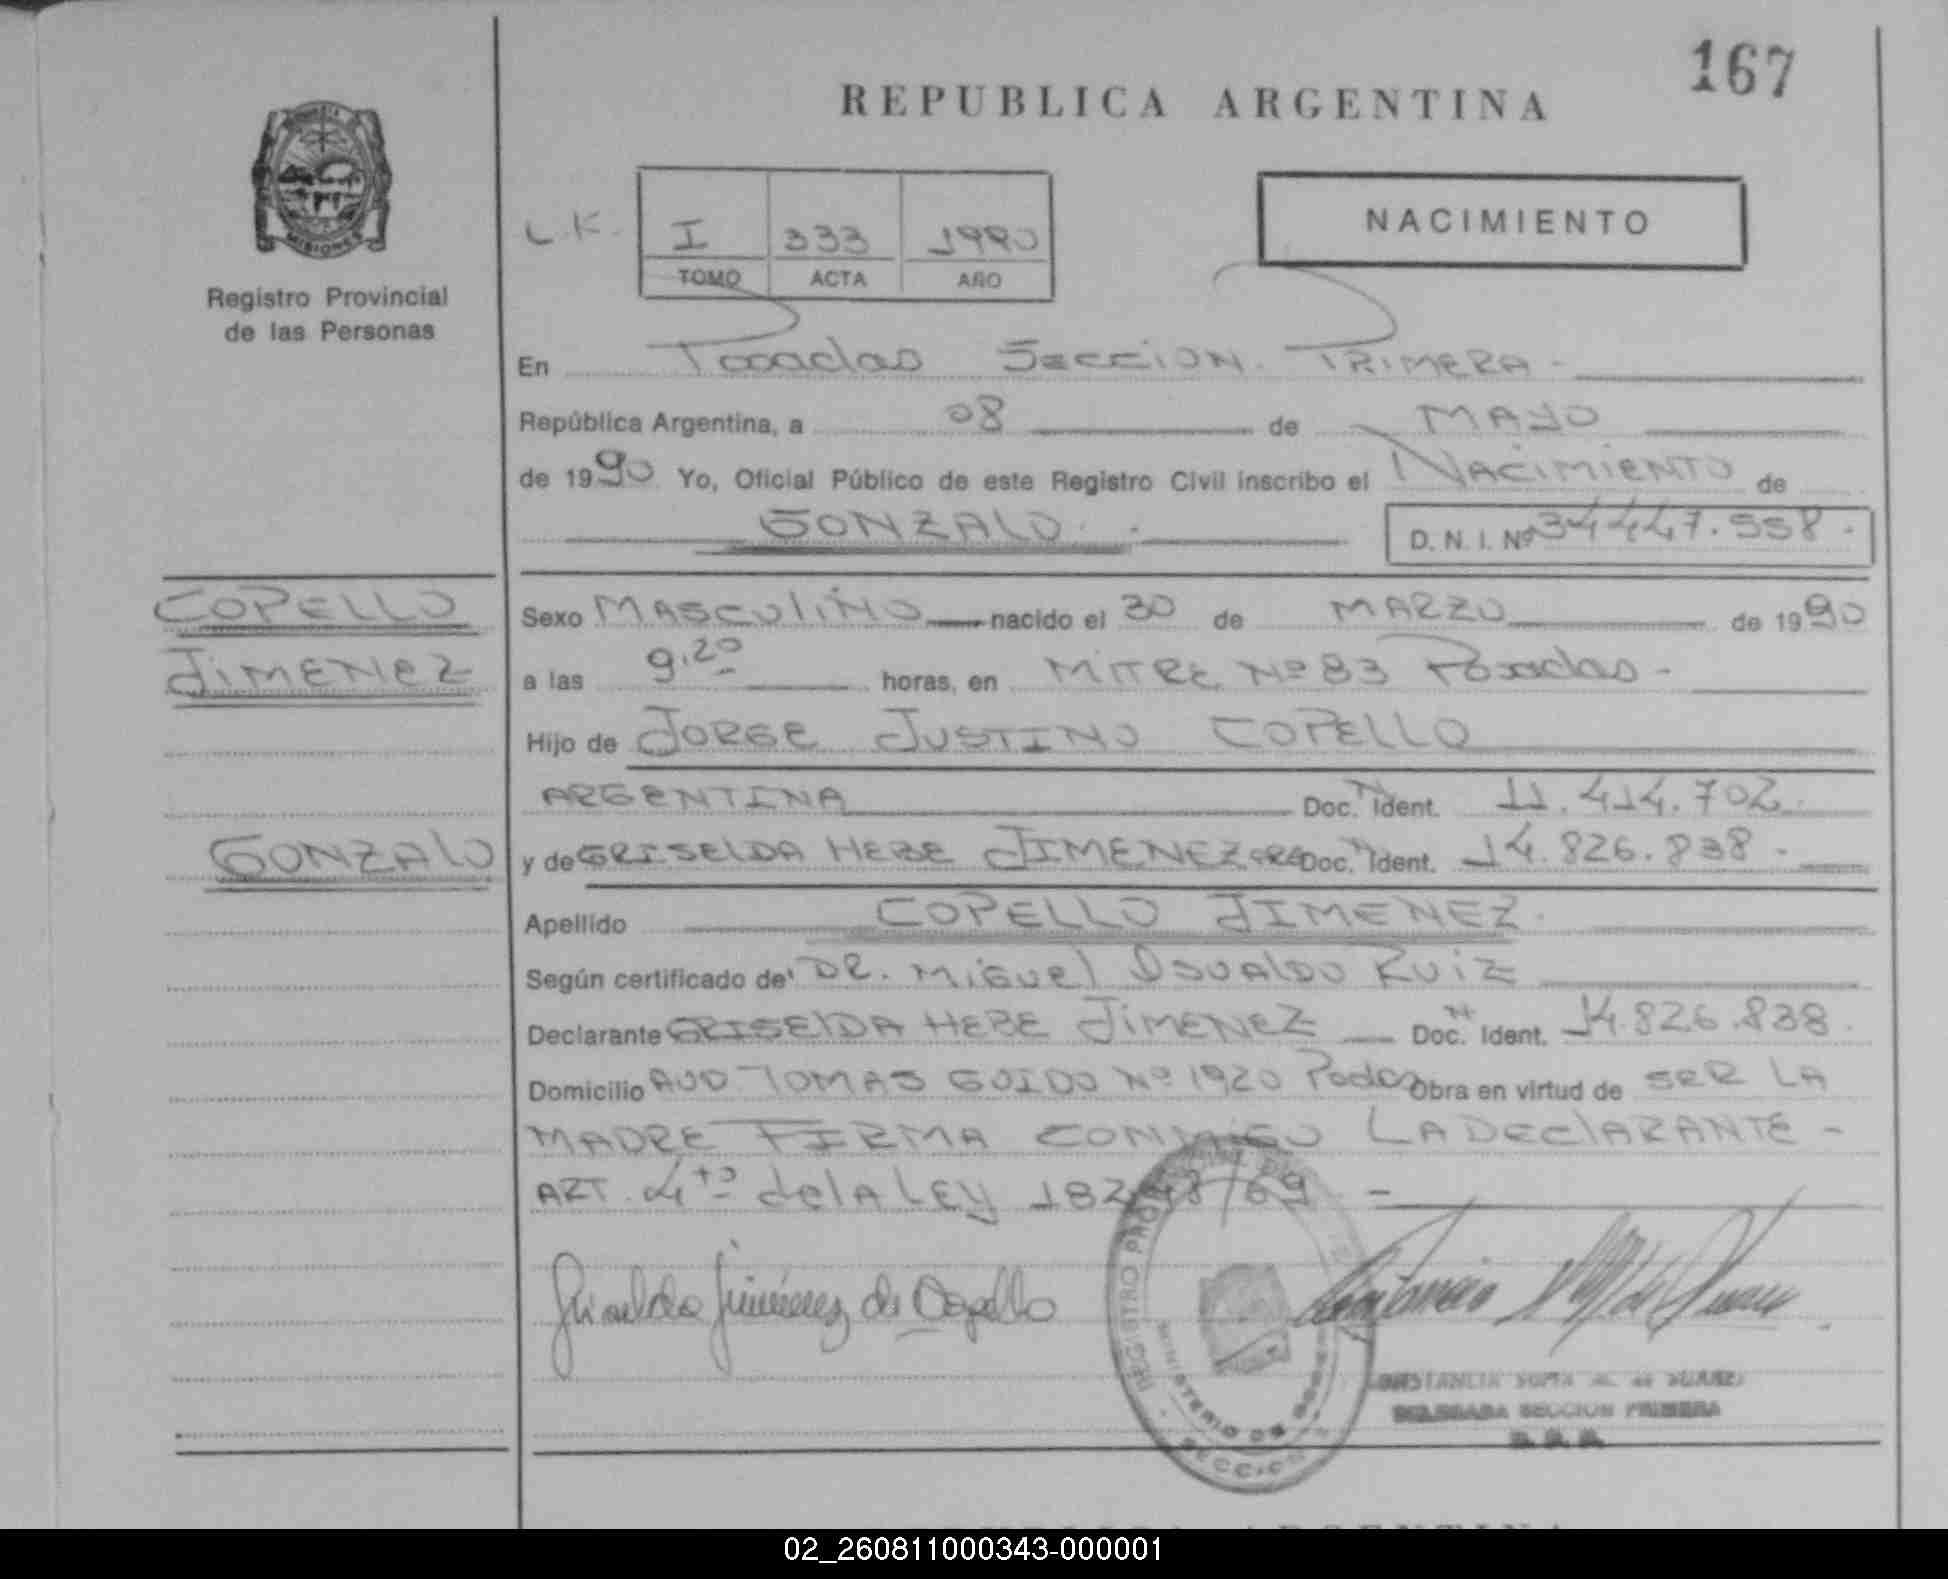 167
REPUBLICA ARGENTINA
MISIONES
Registro Provincial
de las Personas
L.K.
I 333 1990
TOMO ACTA AÑO
NACIMIENTO
En Posadas SECCION PRIMERA -
República Argentina, a 08 de MAYO
de 1990 Yo, Oficial Público de este Registro Civil inscribo el NACIMIENTO de
GONZALO.- D. N. I. Nº 34447.558.
COPELLO
JIMENEZ
GONZALO
Sexo MASCULINO nacido el 30 de MARZO de 1990
a las 9.20 horas, en MITRE Nº 83 Posadas -
Hijo de JORGE JUSTINO COPELLO
ARGENTINA Doc. N Ident. 11.414.702.
y de GRISELDA HEBE JIMENEZ Doc. N Ident. 14.826.838-
Apellido COPELLO JIMENEZ.
Según certificado de DR. MIGUEL OSVALDO RUIZ
Declarante GRISELDA HEBE JIMENEZ Doc. N Ident. 14.826.838.
Domicilio TOMAS GUIDO Nº 1920 Obra en virtud de SER LA
MADRE FIRMA CONMIGO LA DECLARANTE -
ART. 4to de la LEY 18248/69 -
Griselda Jiménez de Copello
REGISTRO
MINISTERIO DE
SECCION
DELEGADA SECCION PRIMERA
02_260811000343-000001